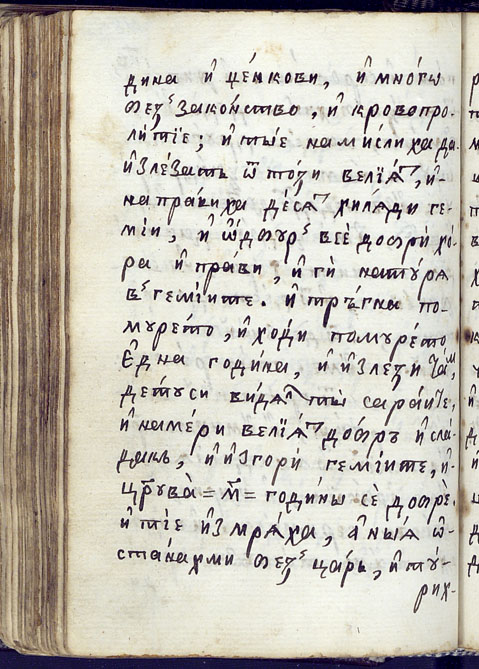 дина и ценкови, и многѡ
без̾ законство, и кровопро-
литїе; и тые намислиха да
излезатъ ѿ този велїѧт, и-
направиха десѧт хилѧди ге-
мїи, и ѿдбур̾ все добри хо-
ра и прави, и ги натурѧ
в̾ гемїите. и тръгна по-
мурето, и ходи помурето
една година, и излези там,
детуси видѧт ты сараите,
и намери велїѧт добръ и сла-
дакъ, и изгори гемїите, и-
црѹва =м҃= години се добре.
и тїе измрѧха, а ныѧ ѡ-
станахми без̾ царь, и ту-
рих-